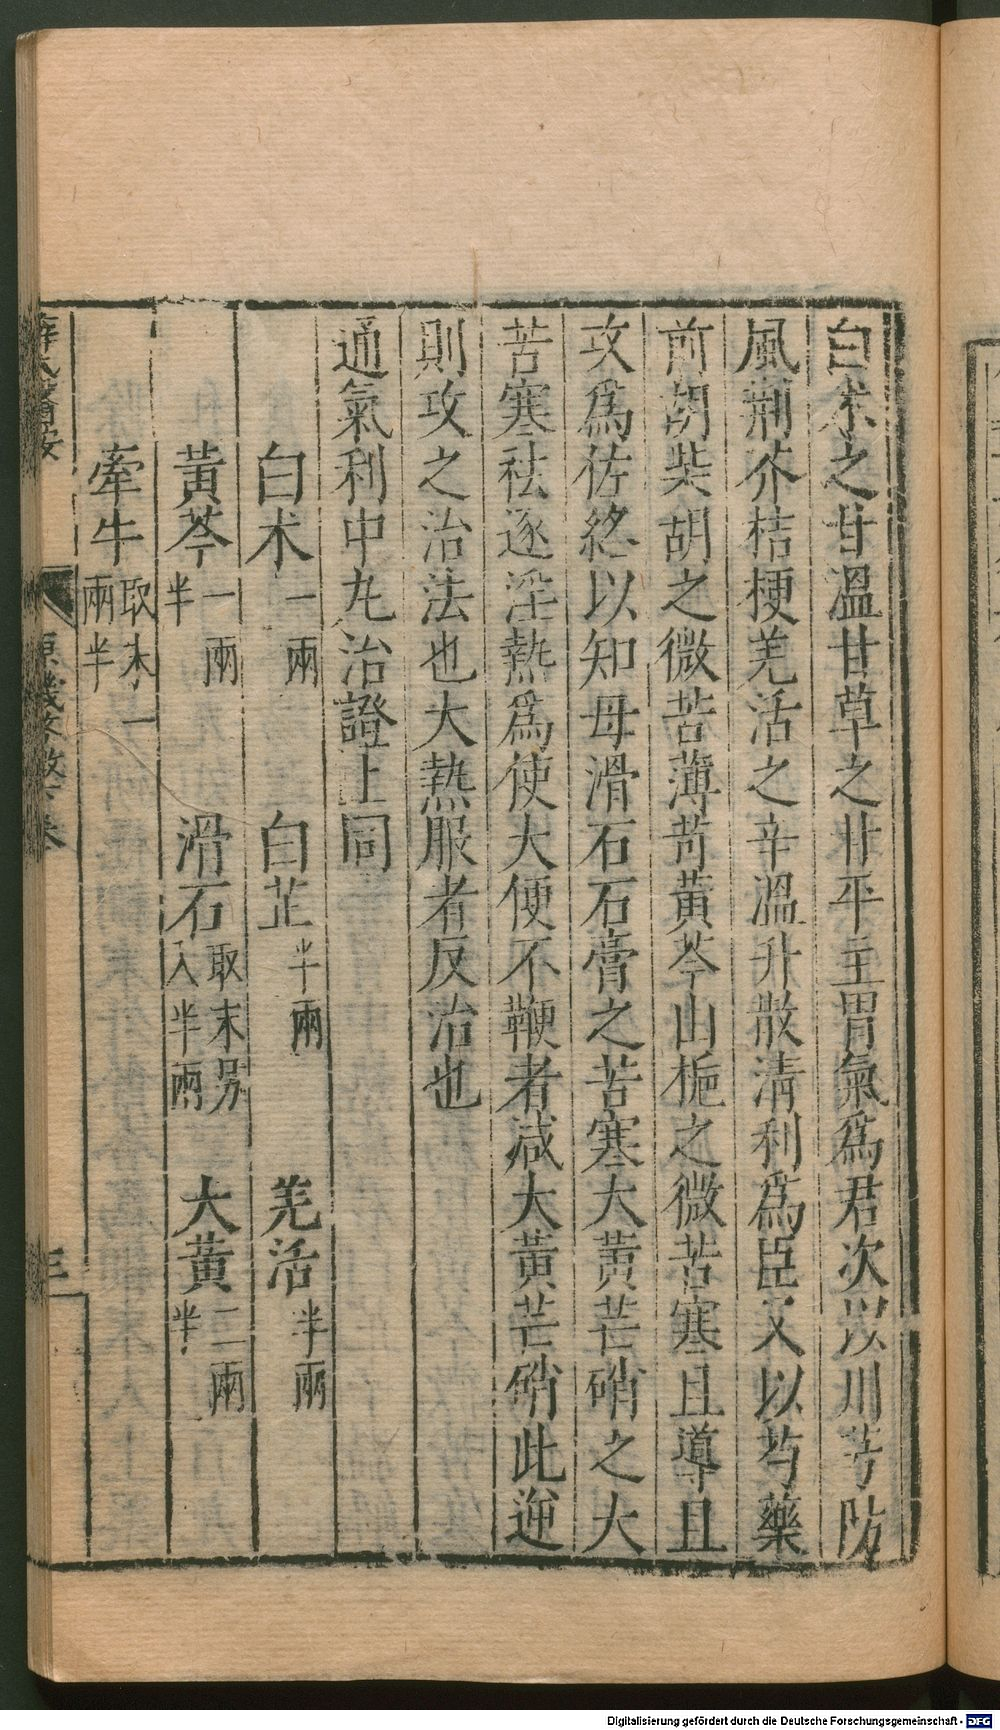 白朮之甘溫甘草之甘平主胃氣爲君次以川芎防
風荊芥桔梗羌活之辛溫升散淸利爲臣又以芍藥
前胡柴胡之微苦薄荷黃芩山梔之微苦寒且導且
攻爲佐終以知母滑石石膏之苦寒大黃芒硝之大
苦寒祛逐淫熱爲使大便不鞭者減大黃芒硝此逆
則攻之治法也大熱服者反治也
通氣利中丸治證上同
白朮一兩 白芷半兩 羌活半兩
黃芩一兩半 滑石取末另入半兩 大黃二兩半
牽牛取末一兩半
薛氏醫按 原機啟微下卷 三
Digitalisierung gefördert durch die Deutsche Forschungsgemeinschaft - DFG